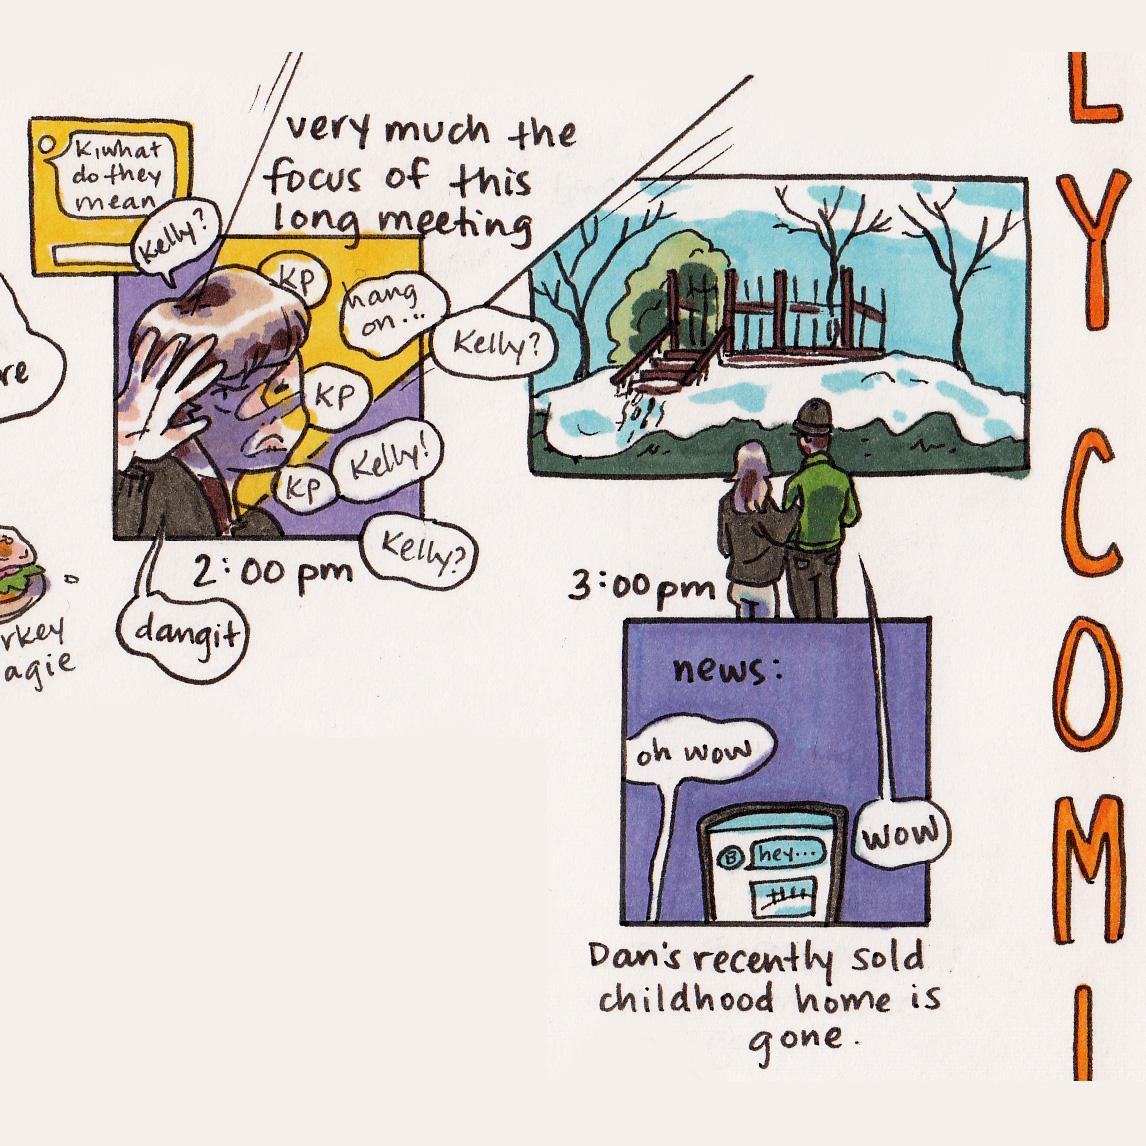 very much the
focus of this
long meeting
K, what
do they
mean
Kelly?
KP
hang
on...
Kelly?
KP
Kelly!
KP
Kelly?
2:00 pm
dangit
3:00 pm
news:
oh wow
B
hey...
wow
Dan's recently sold
childhood home is
gone.
L
Y
C
O
M
I